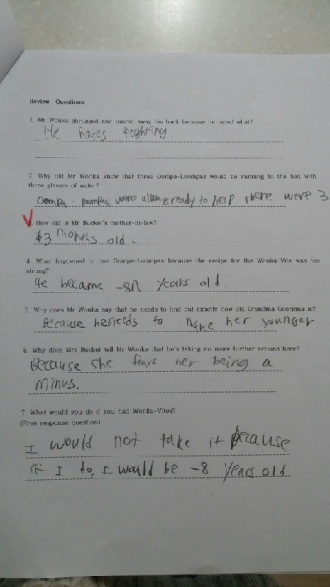 Review Questions
1. Mr Wonka shrugged and turned away his back because he hated what?
He hates fighting
2. Why did Mr Wonka know that three Oompa-Loompas would be running to the bed with
three glasses of water?
Oompa-Loompas were always ready to help there were 3
3. How old is Mr Bucket's mother-in-law?
3 months old.
4. What happened to one Oompa-Loompas because the recipe for the Wonka-Vite was too
strong?
He became -87 years old.
5. Why does Mr Wonka say that he needs to find out exactly how old Grandma Georgina is?
Because he needs to make her younger
6. Why does Mrs Bucket tell Mr Wonka that he's taking no more further actions here?
Because she fears her being a
minus.
7. What would you do if you had Wonka-Vites?
(Free response question)
I would not take it because
if I do, I would be -8 years old